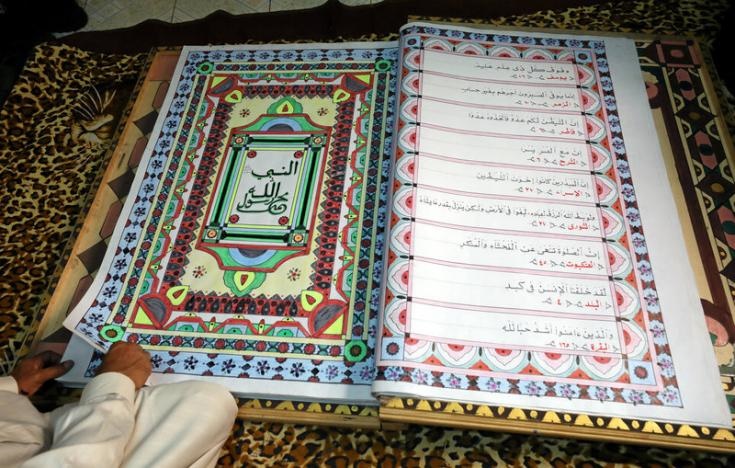 وفوق كل ذي علم عليم
< يوسف > < ٧٦ >
إنما يوفى الصبرون أجرهم بغير حساب
< الزمر > < ١٠ >
إن الشيطن لكم عدو فاتخذوه عدوا
< فاطر > < ٦ >
إن مع العسر يسرا
< الشرح > < ٦ >
إن المبذرين كانوا إخون الشيطين
< الإسراء > < ٢٧ >
ولو بسط الله الرزق لعباده لبغوا في الأرض ولكن ينزل بقدر ما يشاء
< الشورى > < ٢٧ >
إن الصلوة تنهى عن الفحشاء والمنكر
< العنكبوت > < ٤٥ >
لقد خلقنا الإنسن في كبد
< البلد > < ٤ >
والذين ءامنوا أشد حبا لله
< البقرة > < ١٦٥ >
النبي
محمد رسول الله